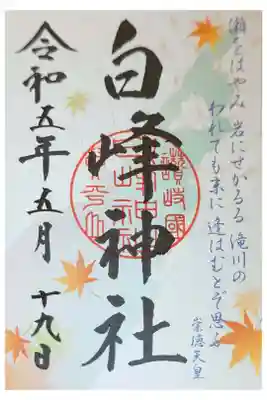 瀬をはやみ 岩にせかるる 滝川の
われても末に 逢はむとぞ思ふ
崇徳天皇
白峰神社
讃岐國
令和五年五月 十九日